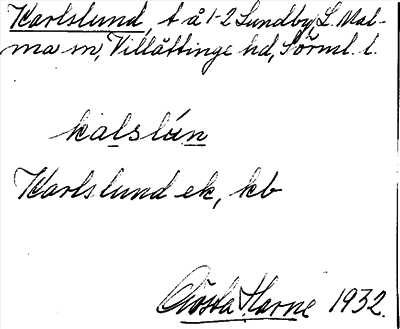 Karlslund, t å 1-2 Lundby, L. Mal-
ma sn, Villåttinge hd, Sörml. l.
kalslún
Karlslund ek, kb
Gösta Harne 1932.